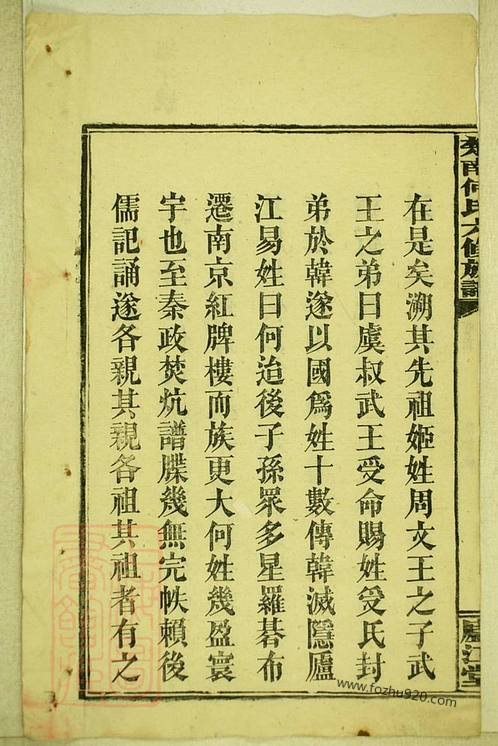 南何氏六修族譜
廬江堂
在是矣溯其先祖姬姓周文王之子武
王之弟曰虞叔武王受命賜姓受氏封
弟於韓遂以國爲姓十數傳韓滅隱廬
江易姓曰何迨後子孫眾多星羅碁布
遷南京紅牌樓而族更大何姓幾盈寰
宇也至秦政焚炕譜牒幾無完帙賴後
儒記誦遂各親其親各祖其祖者有之
www.fozhu920.com